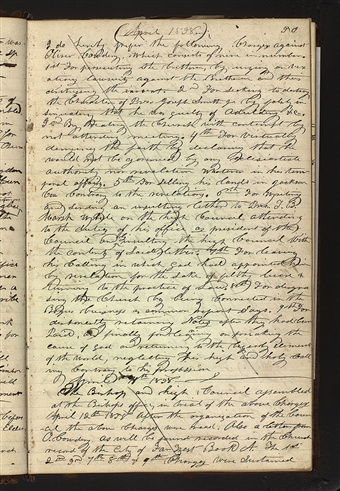 April 1838 30
I do hereby prefer the following Charges against
Oliver Cowdery, which consists of nine in number.
1st For persecuting the brethren by urging on vex
atious Lawsuits against the Brethren and thus
distressing the innocent. 2nd For seeking to destroy
the Character of Pres. Joseph Smith jr by falsly in
sinuating that he was guilty of Adultry &c.
3rd By treating the Church with contempt by
not attending meeting. 4th For virtually
denying the faith by declaring that he
would not be governed by any Eclesiastical
authority nor revelation whatever in his tem
poral affairs. 5th For selling his lands in Jackson
Co Contrary to the revelations. 6th For writing
and sending an insulting letter to Pres. T. B.
Marsh while on the high Council attending
to the duties of his office as president of the
Council by insulting the high Council with
the contents of said letter. 7th For leaving
the Calling in which God had appointed him
by revelation for the sake of filthy lucre &
turning to the practice of Law. 8th For disgra
cing the Church by being connected in the
Bogus buisness as common report says. 9th For
dishonestly retaining Notes after they had been
Paid, and finally for leaving or forsaking the
cause of God and returning to the beggerly elements
of the world, neglecting his high and holy Call
ing Contrary to his profession.
April 11th 1838
The Bishop and high Council assembled
at the Bishops office in trial of the above Charges
April 12th 1838 After the organization of the Coun
cil the above Charges were read. Also a letter from
O Cowdery as will be found recorded in the Church
record of the City of Far West Book A. The 1st
2nd 3rd 7th 8th & 9th Charges were sustained